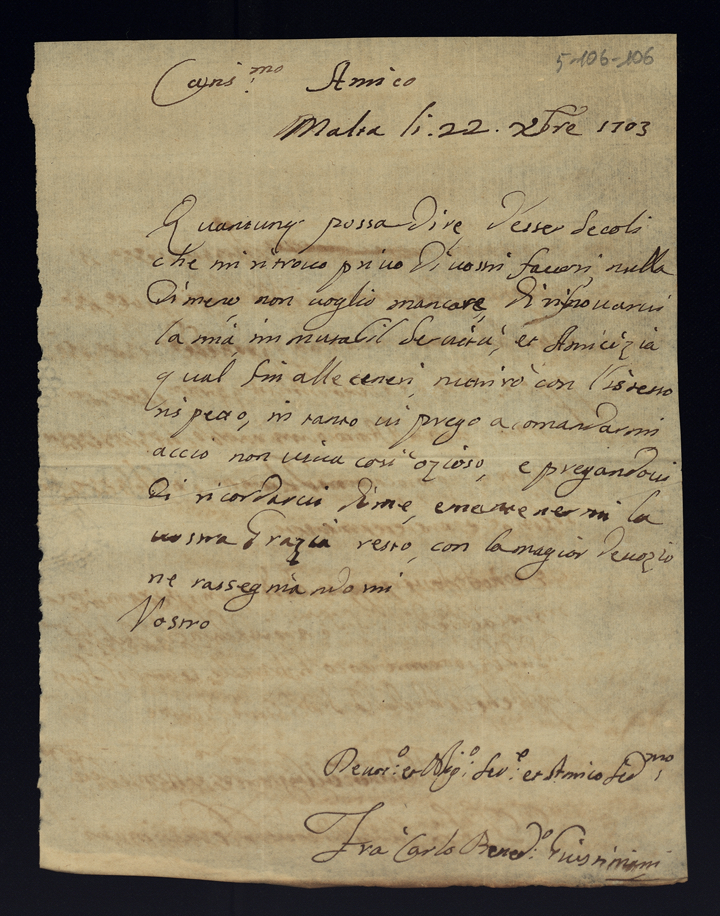 5-106-106
Caris.mo Amico
Malta li. 22. Xbre 1703
Quantunq possa dire d'esser secoli
che mi ritrovo privo di vostri favori, nulla
dimeno non voglio mancare, di rinovarvi
la mia immutabil servitù, et Amicizia
qual fin alle ceneri, nutrirò con l'istesso
rispetto, in tanto vi prego a comandarmi
acciò non viva così ozioso, e pregandovi
di ricordarvi di me, e mantenermi la
vostra Grazia resto, con la magior devozio
ne rassegniandomi
Vostro
Devot.o et Oblig.o Ser.e et Amico Fed.mo
Fra Carlo Bened.o Giustiniani